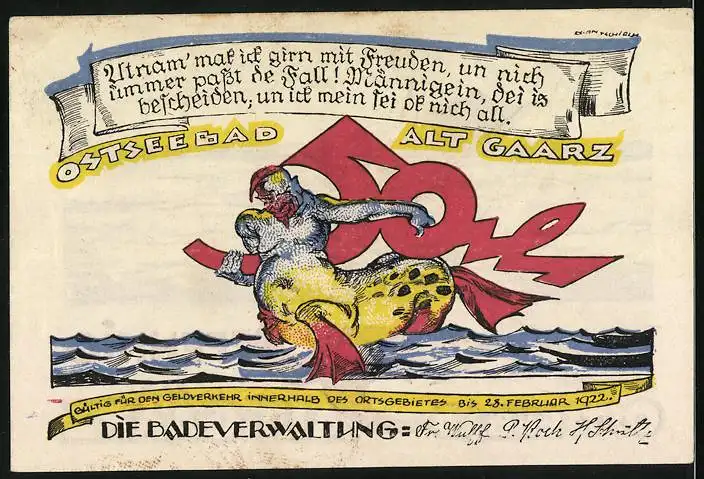 Utnam' mak ick girn mit Freuden, un nich
ümmer paßt de Fall! Männigein, dei is
bescheiden, un ick mein sei ok nich all.
OSTSEEBAD ALT GAARZ
50 Pf
GÜLTIG FÜR DEN GELDVERKEHR INNERHALB DES ORTSGEBIETES BIS 28. FEBRUAR 1922.
DIE BADEVERWALTUNG: Fr. Wulff P. Koch H. Schult